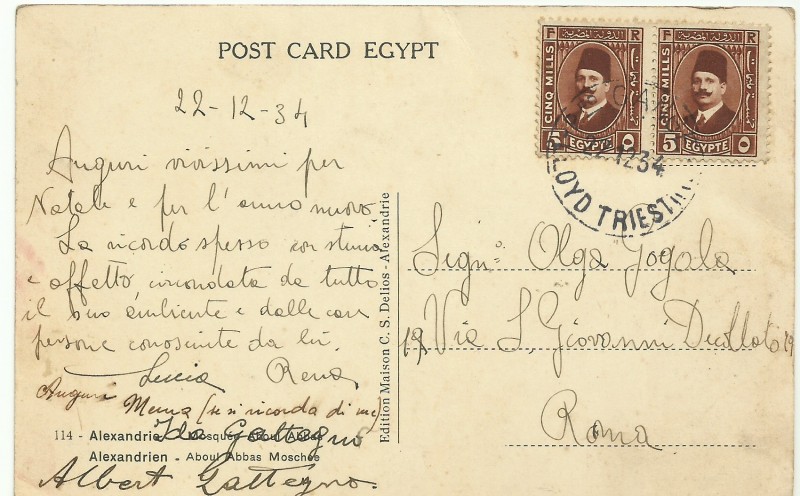 POST CARD EGYPT
22-12-34
Auguri vivissimi per
Natale e per l'anno nuovo
La ricordo spesso con stima
e affetto circondata da tutto
il suo ambiente e dalle care
persone conosciute da lei.
Lucia Rena
Auguri
Mema (se si ricorda di me)
Ida Gattegno
Albert Gattegno.
114 - Alexandrie - Mosquée Aboul Abbas
Alexandrien - Aboul Abbas Moschée
Edition Maison C. S. Delios - Alexandrie
F R
الدولة المصرية
CINQ MILLS
5 EGYPTE ٥
F R
الدولة المصرية
CINQ MILLS
5 EGYPTE ٥
12 34
LLOYD TRIESTIN
Sign.
Olga Gogala
19 Via S. Giovanni Decollato 19
Roma